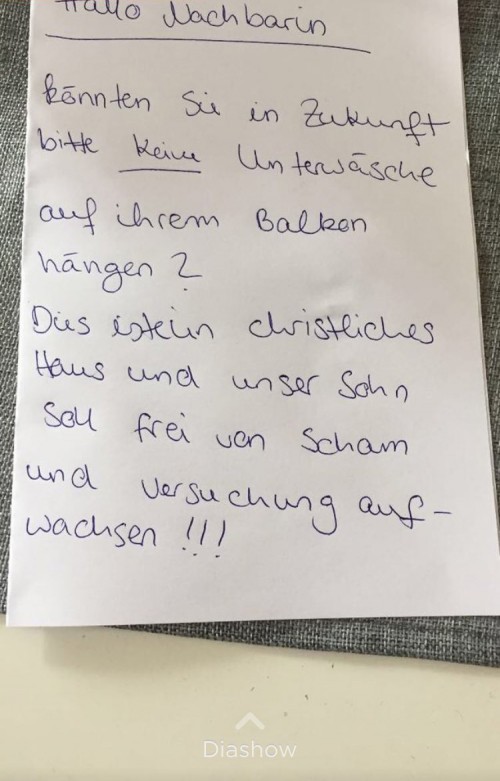 Hallo Nachbarin
könnten Sie in Zukunft
bitte keine Unterwäsche
auf ihrem Balkon
hängen?
Dies ist ein christliches
Haus und unser Sohn
soll frei von Scham
und Versuchung auf-
wachsen !!!
Diashow